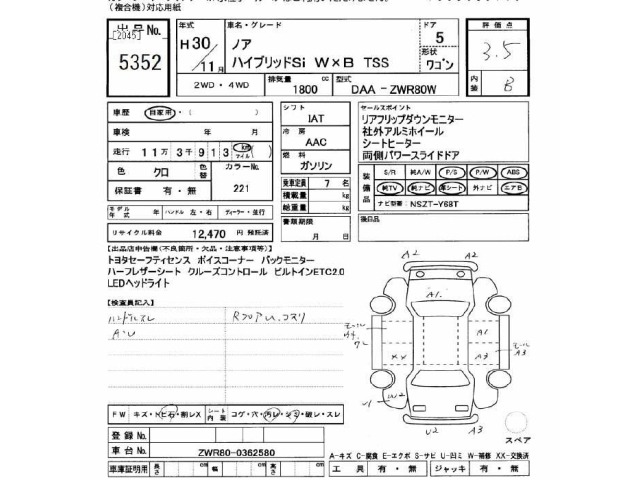 (複合機)対応用紙
出品号No.
[2045]
5352
年式
H30/11月
車名・グレード
ノア
ハイブリッドSi W×B TSS
ドア
5
形状
ワゴン
評価点
3.5
内装
B
2WD・4WD
排気量 1800 cc
型式 DAA-ZWR80W
車歴 自家用・( )
車検 年 月
走行 11万3千913 km マイル
色 クロ 色替 カラーNo. 221
保証書 有・無
モデル年式 年 ハンドル 左・右 ディーラー・並行
リサイクル料金 12,470 円 預託済
シフト IAT
冷房 AAC
燃料 ガソリン
乗車定員 7 名
積載量 kg
総重量 kg
書類期限
月 日
セールスポイント
リアフリップダウンモニター
社外アルミホイール
シートヒーター
両側パワースライドドア
装備品 S/R 純A/W P/S P/W ABS
純TV 純ナビ 革シート 外ナビ エアB
ナビ型番 NSZT-Y68T
後日品
【出品店申告欄(不良箇所・欠品・注意事項等)】
トヨタセーフティセンス ボイスコーナー バックモニター
ハーフレザーシート クルーズコントロール ビルトインETC2.0
LEDヘッドライト
【検査員記入】
ハンドルスレ
A・U
RフロアU、コスリ
FW キズ・ヒビ石・割レX シート内装 コゲ・穴・汚レ・シミ・破レ・スレ
登録No.
車台No. ZWR80-0362580
車庫証明用 長さ cm 幅 cm 高さ cm
A2 A2
A1
モール
A1
XX
A3
モール
A3
U1 W2
U2 A3
スペア
A-キズ C-腐食 E-エクボ S-サビ U-凹ミ W-補修 XX-交換済
工具 有・無 ジャッキ 有・無